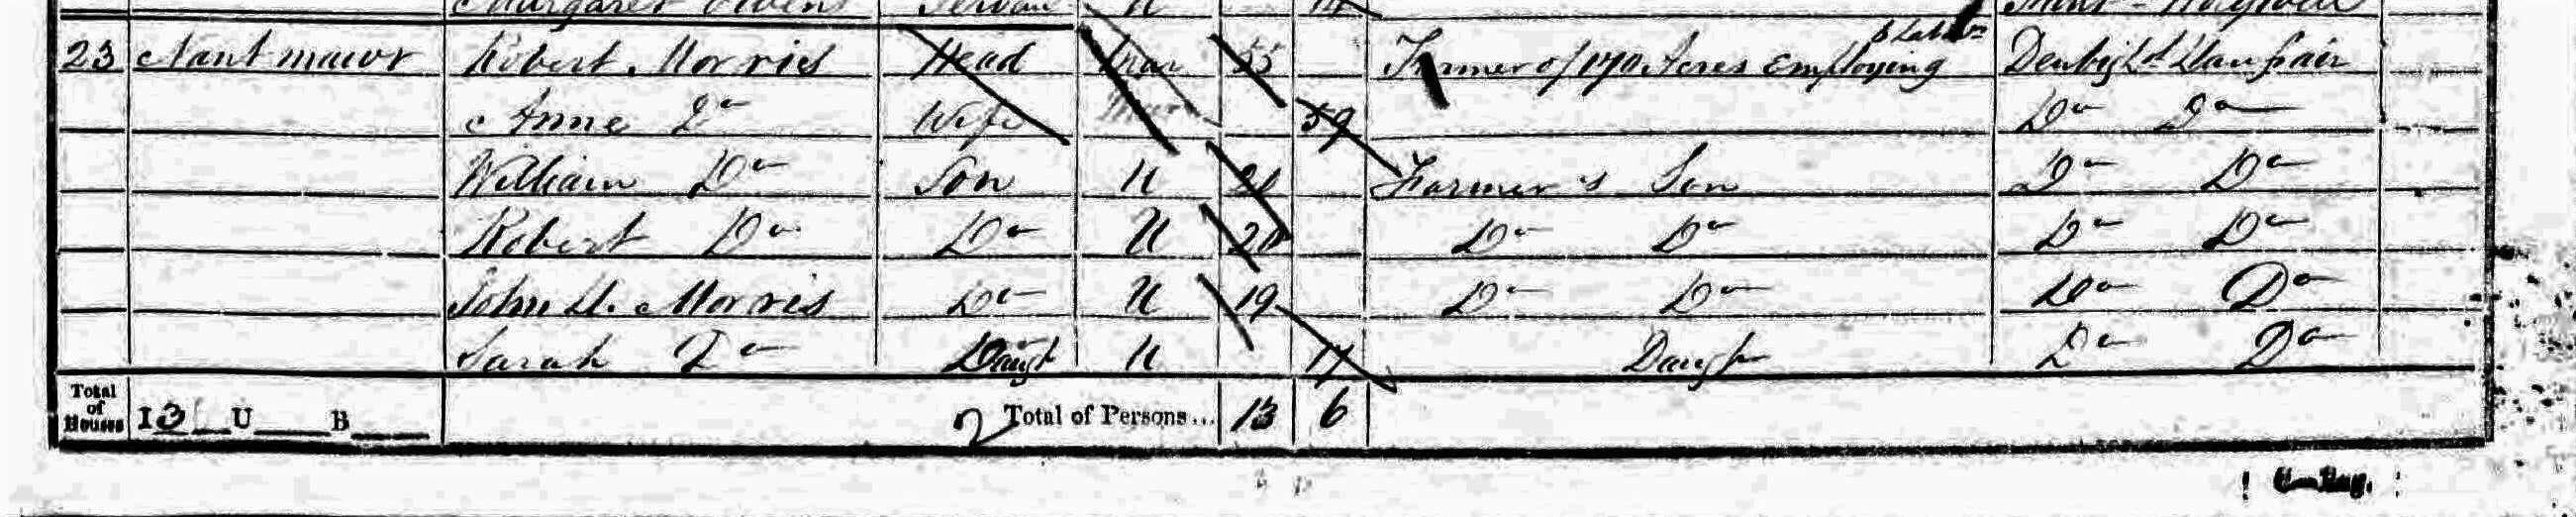 Margaret Owens Servant U 14
23 Nant mawr Robert Morris Head Mar 55 Farmer of 170 Acres Employing 3 Labrs Denbighsh Llanfair
Anne Do Wife Mar 59 Do Do
William Do Son U 21 Farmer's Son Do Do
Robert Do Do U 20 Do Do Do Do
John D. Morris Do U 19 Do Do Do Do
Sarah Do Daugh U 17 Daugh Do Do
Total of Houses I 3 U B 2 Total of Persons... 13 6